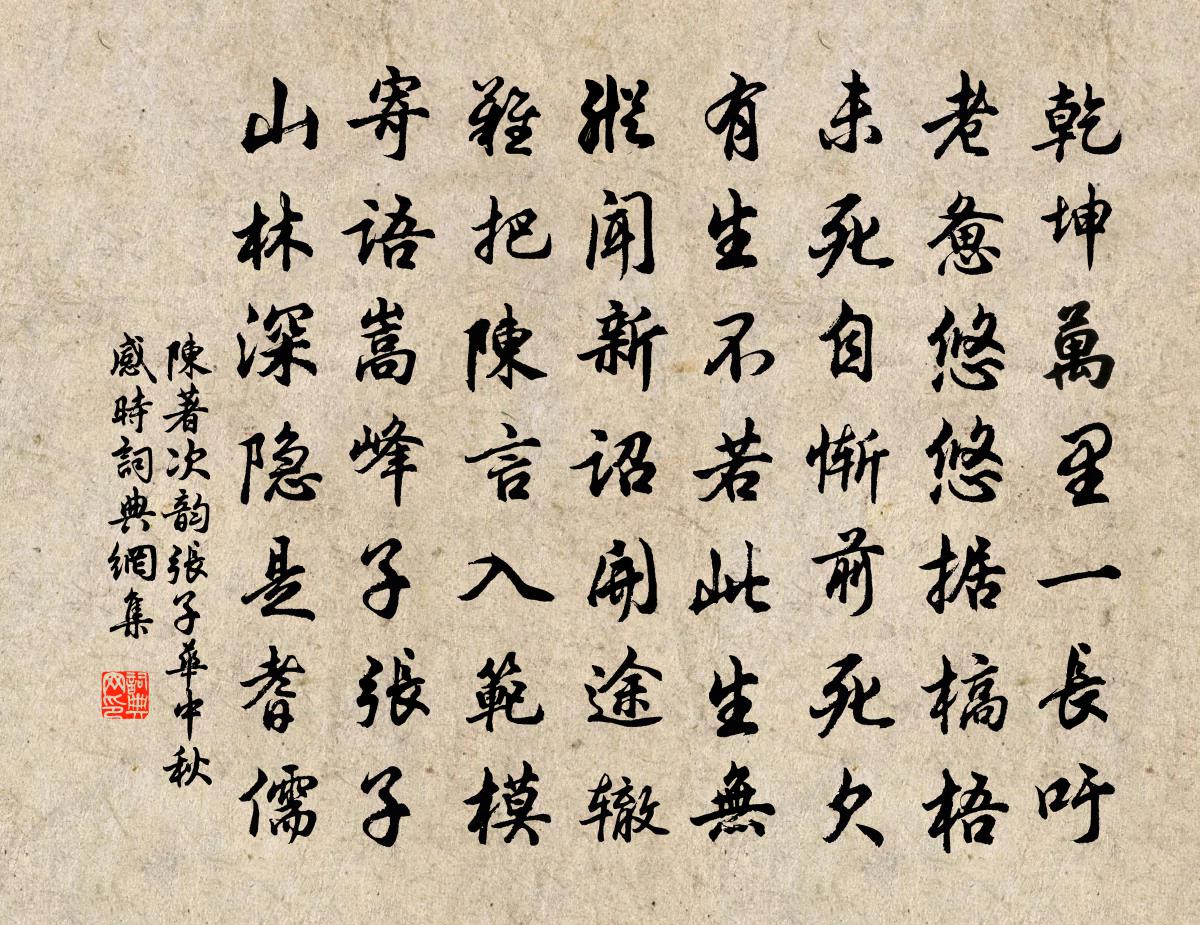 乾坤萬里一長吁
老惫悠悠据槁梧
未死自惭前死久
有生不若此生無
縱闻新诏開途辙
難把陳言入範模
寄語嵩峰子張子
山林深隐是耆儒
陳著次韵張子華中秋
感時詞典網集
詞典
网印